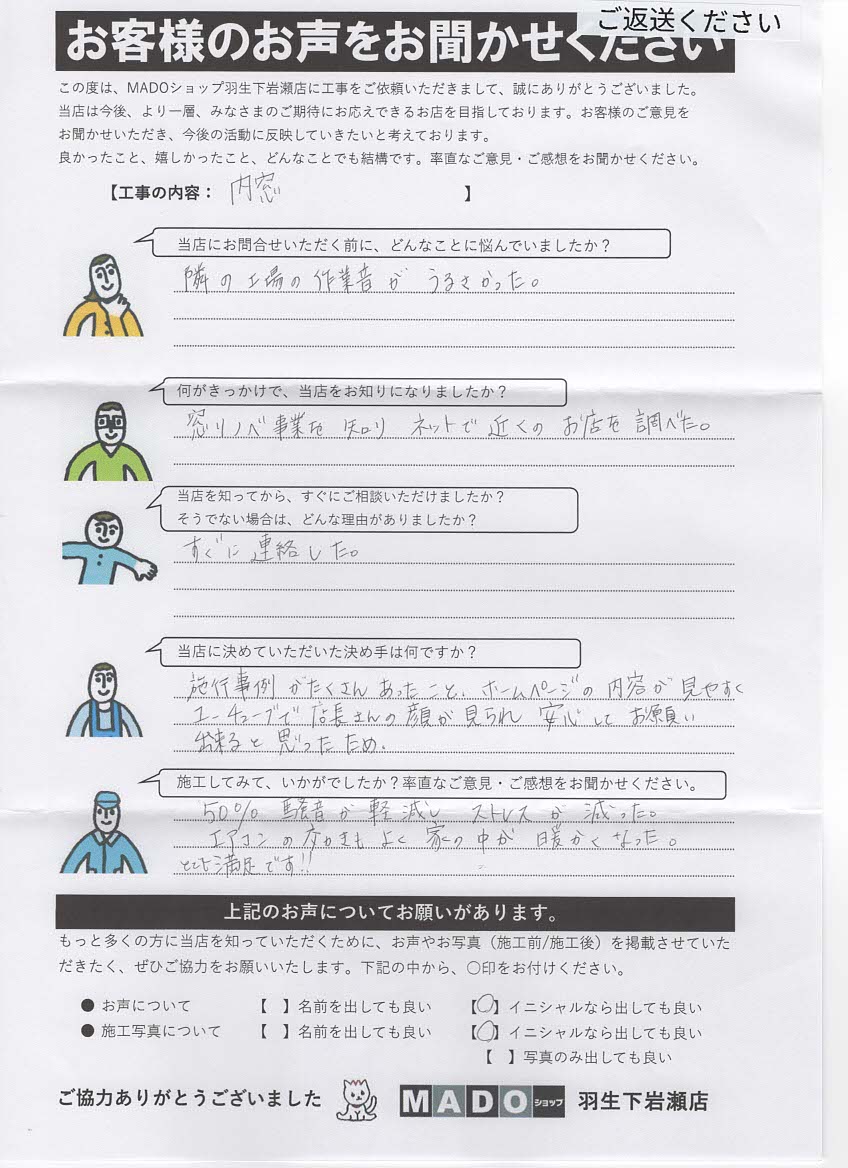 ご返送ください
お客様のお声をお聞かせください
この度は、MADOショップ羽生下岩瀬店に工事をご依頼いただきまして、誠にありがとうございました。
当店は今後、より一層、みなさまのご期待にお応えできるお店を目指しております。お客様のご意見を
お聞かせいただき、今後の活動に反映していきたいと考えております。
良かったこと、嬉しかったこと、どんなことでも結構です。率直なご意見・ご感想をお聞かせください。
【工事の内容： 内窓 】
当店にお問合せいただく前に、どんなことに悩んでいましたか？
隣の工場の作業音がうるさかった。
何がきっかけで、当店をお知りになりましたか？
窓リノベ事業を知り ネットで近くのお店を調べた。
当店を知ってから、すぐにご相談いただけましたか？
そうでない場合は、どんな理由がありましたか？
すぐに連絡した。
当店に決めていただいた決め手は何ですか？
施行事例がたくさんあったこと、ホームページの内容が見やすく
ユーチューブで店長さんの顔が見られ安心してお願い
出来ると思ったため。
施工してみて、いかがでしたか？率直なご意見・ご感想をお聞かせください。
50% 騒音が軽減しストレスが減った。
エアコンの効きもよく家の中が暖かくなった。
とても満足です!!
上記のお声についてお願いがあります。
もっと多くの方に当店を知っていただくために、お声やお写真（施工前/施工後）を掲載させていた
だきたく、ぜひご協力をお願いいたします。下記の中から、〇印をお付けください。
● お声について 【 】名前を出しても良い 【〇】イニシャルなら出しても良い
● 施工写真について 【 】名前を出しても良い 【〇】イニシャルなら出しても良い
【 】写真のみ出しても良い
ご協力ありがとうございました MADOショップ 羽生下岩瀬店